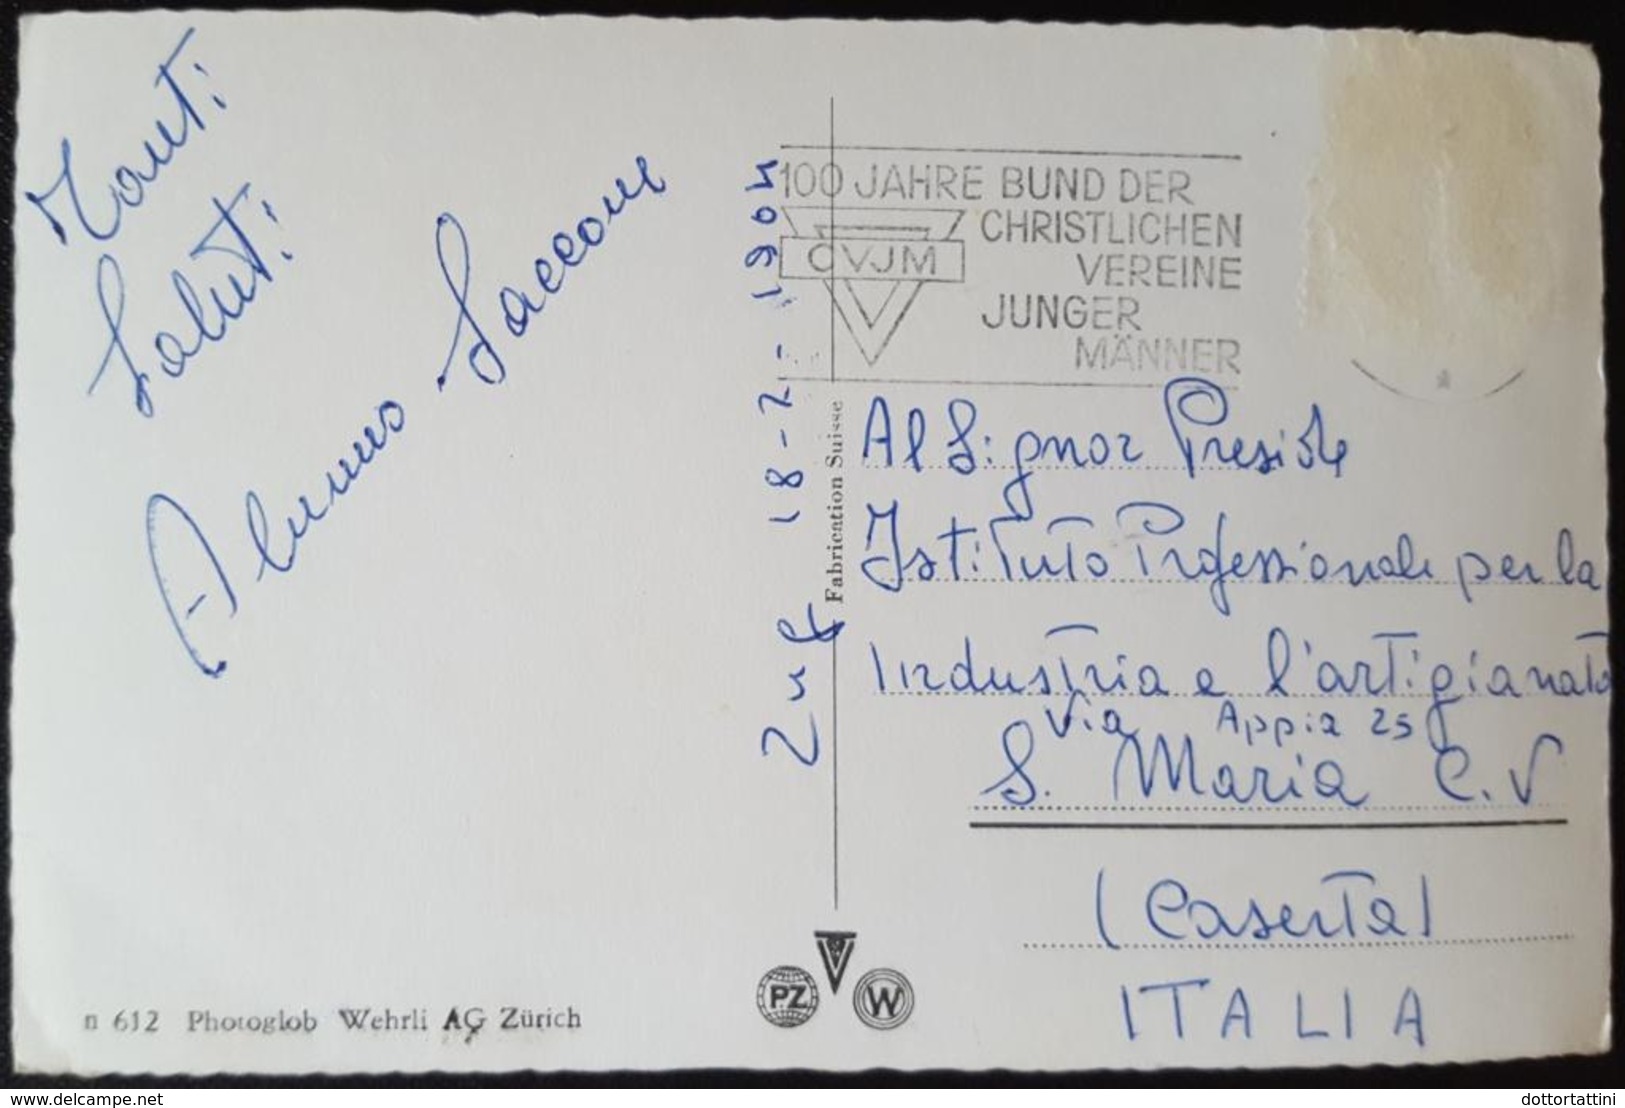 Tanti
Saluti
Alunno Saccone
Zug 18-2-1964
100 JAHRE BUND DER
CHRISTLICHEN
VEREINE
JUNGER
MÄNNER
CVJM
Fabrication Suisse
Al Signor Preside
Istituto Professionale per la
Industria e l'artigianato
Via Appia 25
S. Maria C.V
(Caserta)
ITALIA
n 612 Photoglob Wehrli AG Zürich
PZ
W
delcampe.net
dottortattini